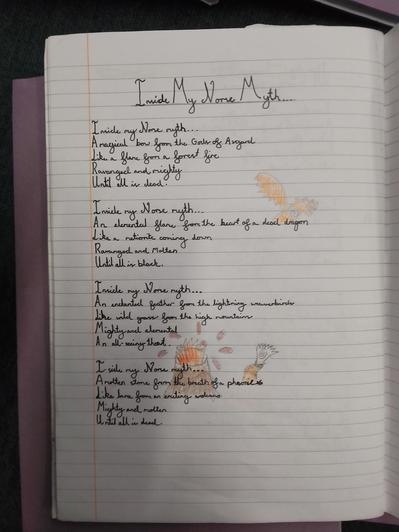 Inside My Norse Myth....
Inside my Norse myth...
A magical bow from the Gods of Asgard
Like a flare from a forest fire
Ravanged and mighty
Until all is dead.
Inside my Norse myth...
An elemental flare from the heart of a dead dragon
Like a coming down
Ravanged and Molten
Until all is black.
Inside my Norse myth...
An enchanted feather from the lightning
Like wild from the high mountains
Mighty and elemental
An all-seeing
Inside my Norse myth...
A molten stone from the breath of a phoenix
Like lava from an volcano
Mighty and molten
Until all is dead.